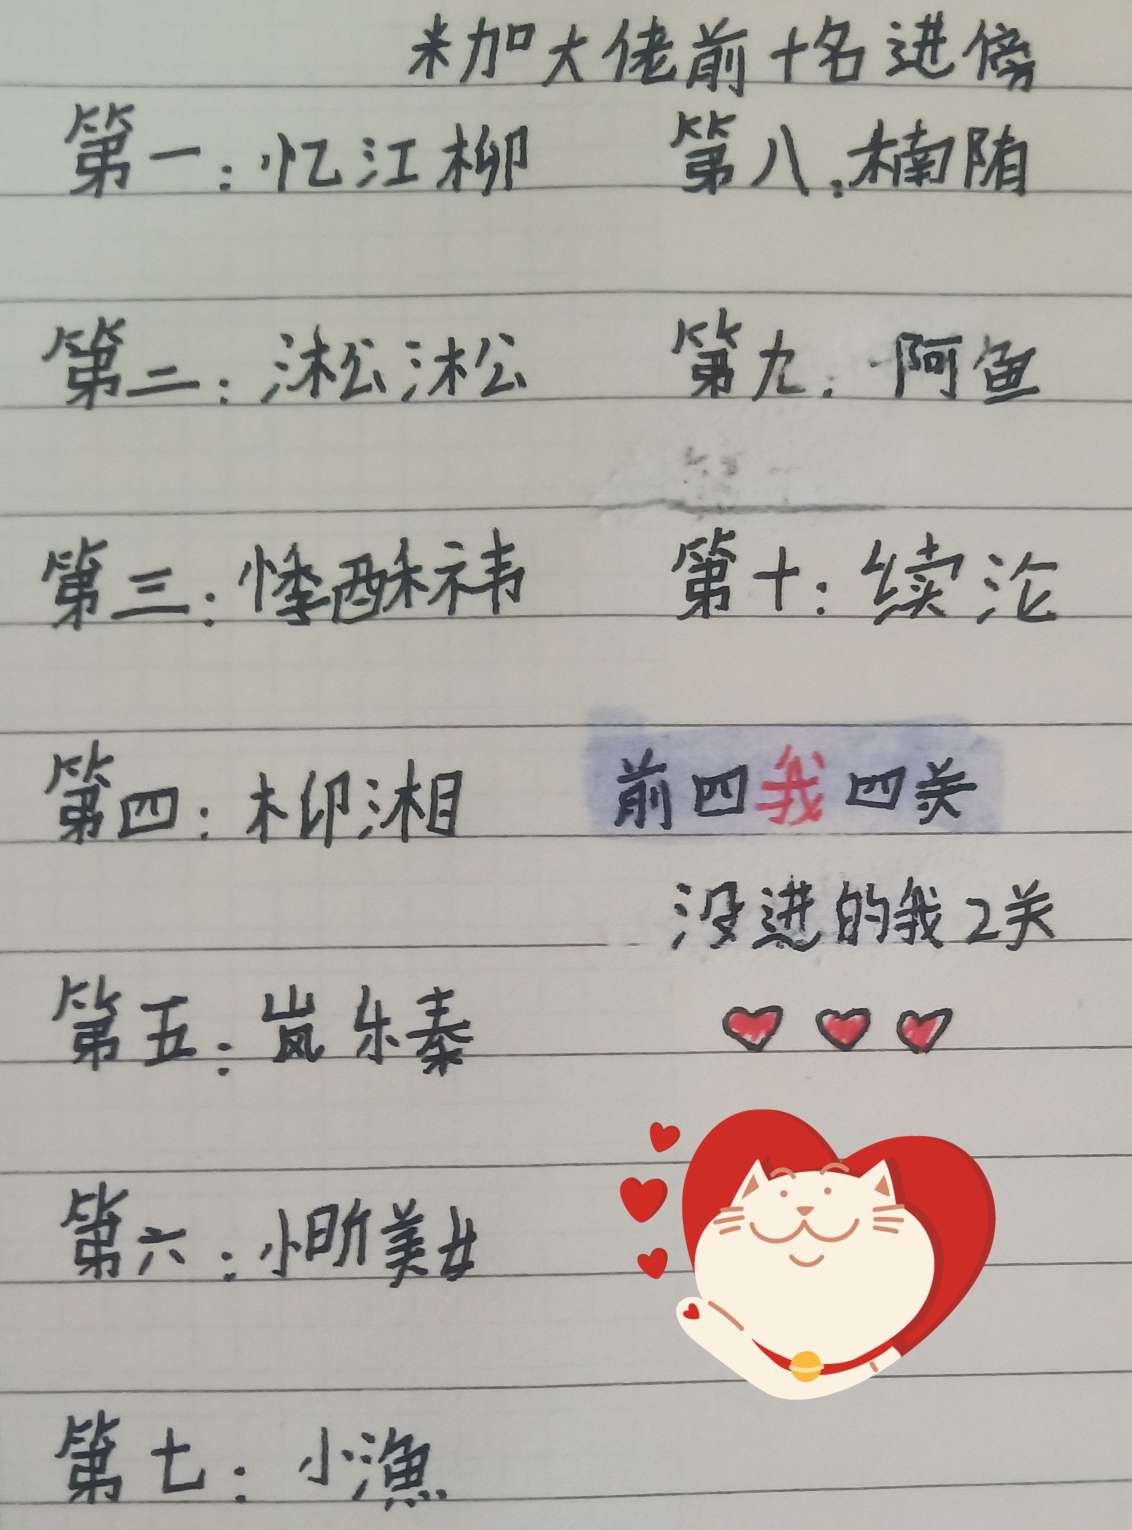 米加大佬前十名进傍
第一:忆江柳
第二:淞淞
第三:悸酥祎
第四:柳湘
第五:岚乐秦
第六:小昕美女
第七:小渔
第八:楠陏
第九:阿鱼
第十:续沦
前四我四关
没进的我2关